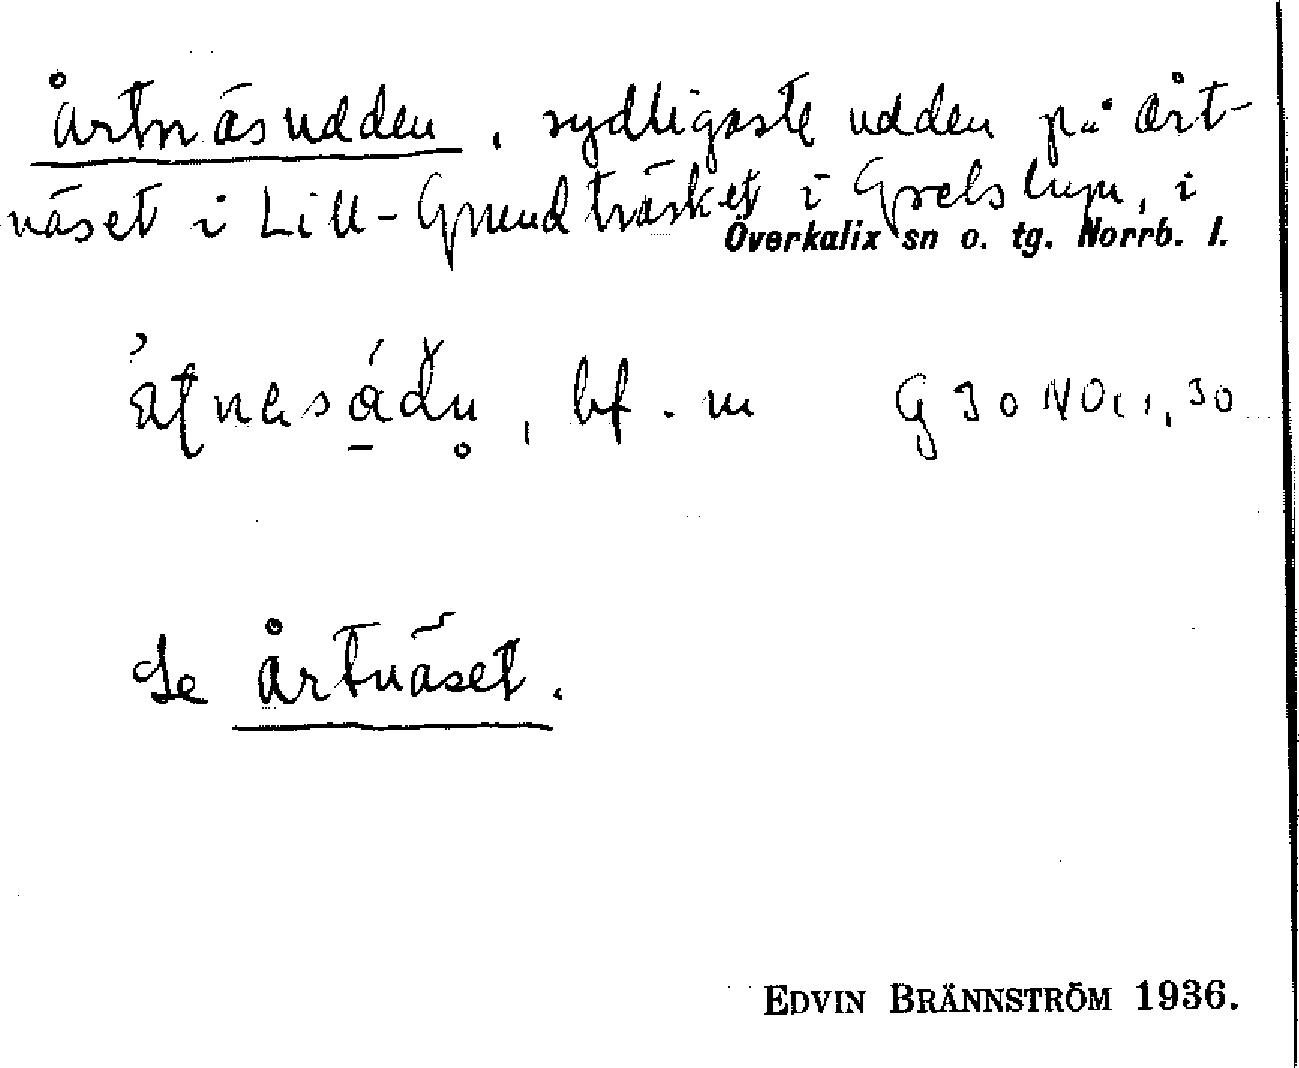 Årtnäsudden, sydligaste udden på Årt-
näset i Lill-Grundträsket i Grelsbyn, i
Överkalix sn o. tg. Norrb. l.
bf. m G 30 NO
Se Årtnäset.
EDVIN BRÄNNSTRÖM 1936.